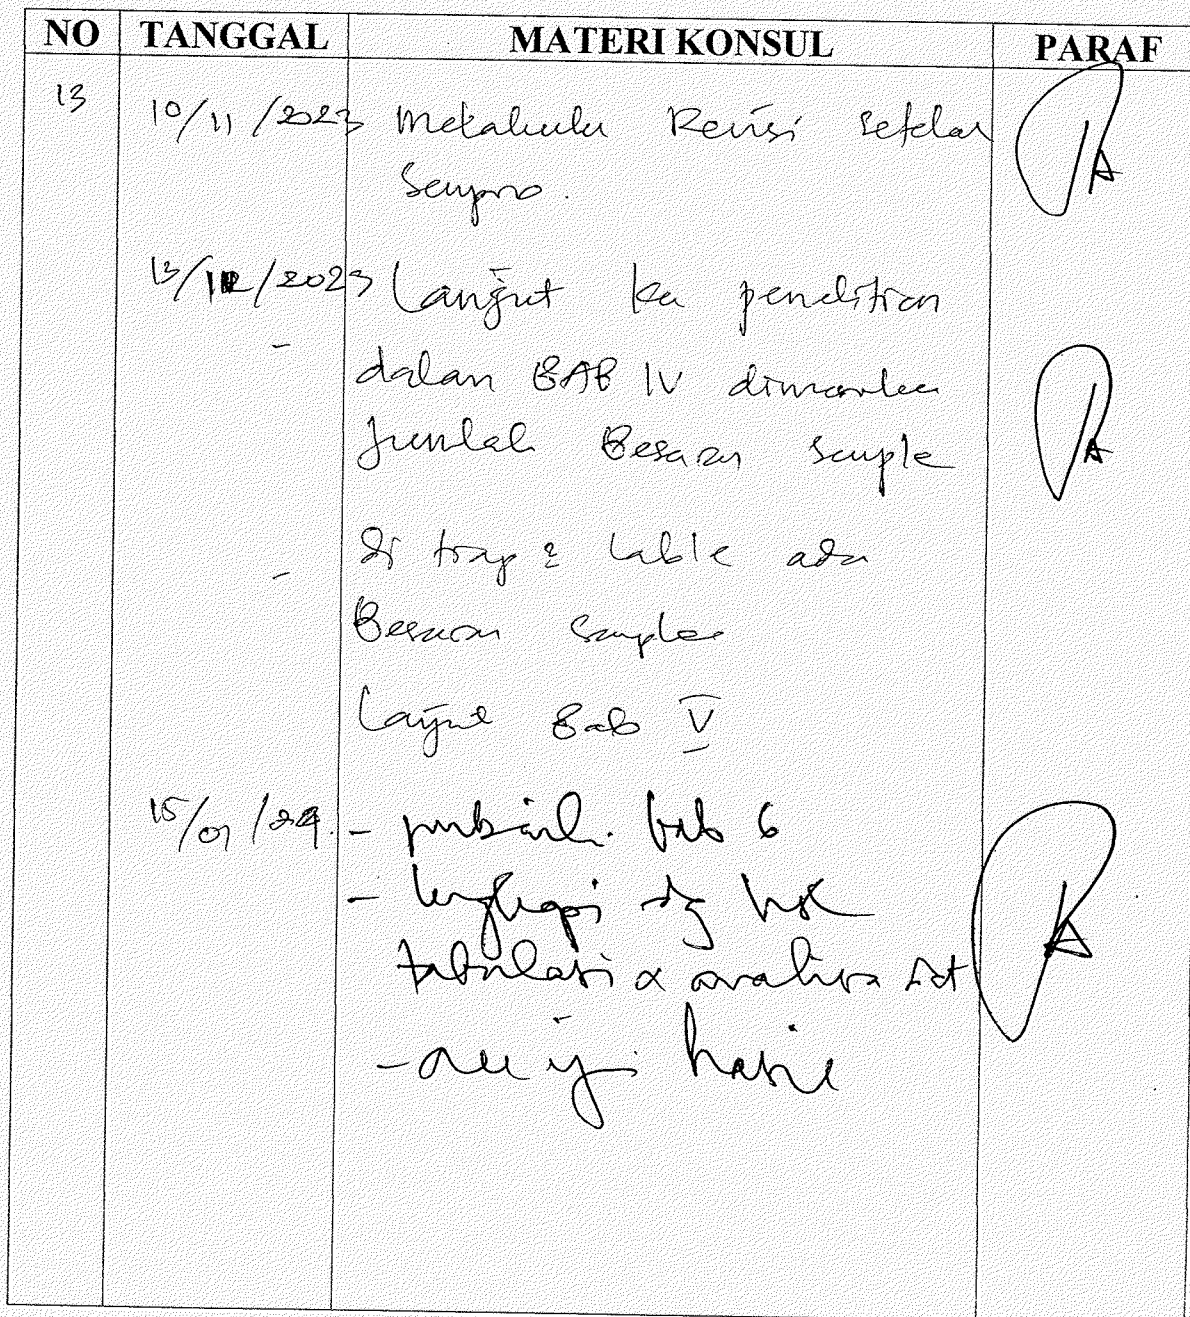 NO TANGGAL MATERI KONSUL PARAF
13 10/11/2023 Melakukan Revisi setelah
Sempro.
13/12/2023 Lanjut ke penelitian
- dalam BAB IV dimasukan
Jumlah Besaran sample
- Di tiap2 table ada
Besaran sample
Lanjut Bab V
15/01/24 - perbaiki bab 6
- lengkapi dg
tabulasi & analisa
- acc uji hasil